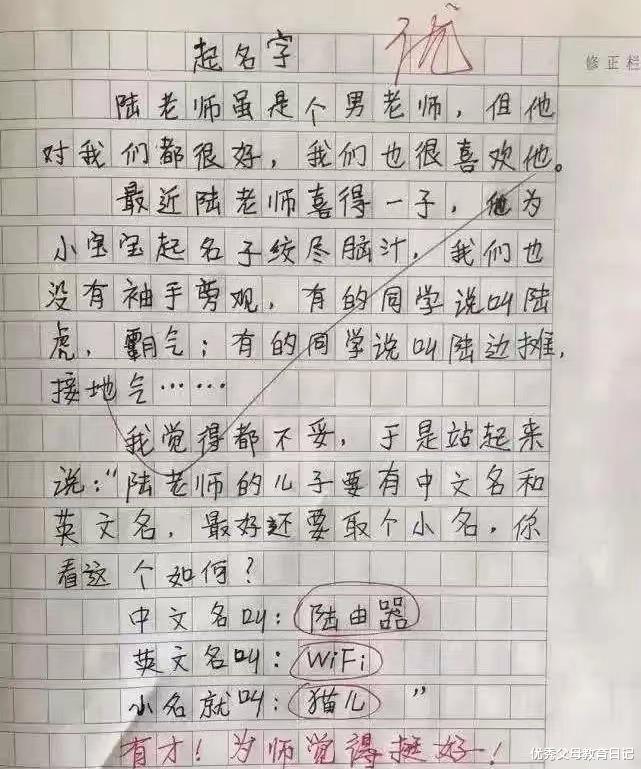 起名字
优
修正栏
陆老师虽是个男老师，但他
对我们都很好，我们也很喜欢他。
最近陆老师喜得一子，他为
小宝宝起名子绞尽脑汁，我们也
没有袖手剪观，有的同学说叫陆
虎，霸气；有的同学说叫陆边摊，
接地气……
我觉得都不妥，于是站起来
说："陆老师的儿子要有中文名和
英文名，最好还要取个小名，你
看这个如何？
中文名叫：陆由器
英文名叫：WiFi
小名就叫：猫儿"
有才！为师觉得挺好！
优秀父母教育日记